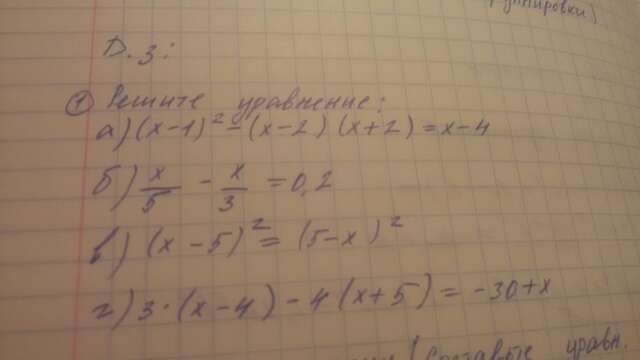 группировки)
Д.з:
① Решите уравнение:
а) (x-1)² - (x-2)(x+2) = x-4
б) x/5 - x/3 = 0,2
в) (x-5)² = (5-x)²
г) 3·(x-4) - 4(x+5) = -30+x
(Составьте уравн.